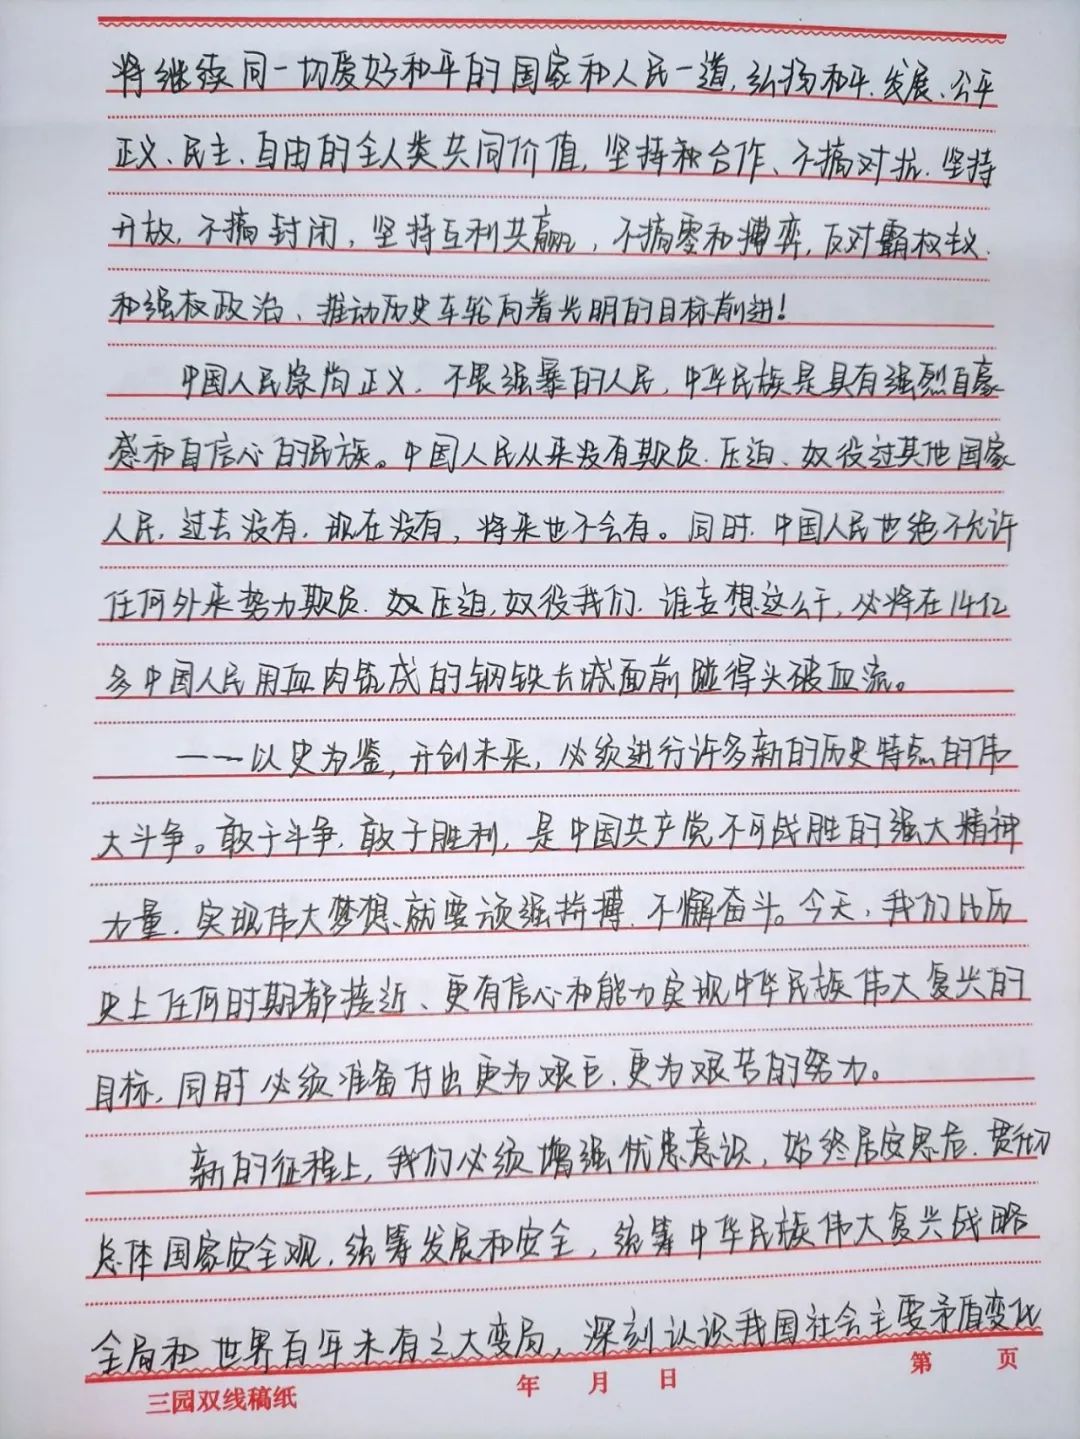 将继续同一切爱好和平的国家和人民一道,弘扬和平、发展、公平
正义、民主、自由的全人类共同价值,坚持和合作、不搞对抗.坚持
开放,不搞封闭,坚持互利共赢,不搞零和博弈,反对霸权主义.
和强权政治、推动历史车轮向着光明的目标前进!
中国人民崇尚正义.不畏强暴的人民,中华民族是具有强烈自豪
感和自信心的民族。中国人民从来没有欺负.压迫、奴役过其他国家
人民,过去没有.现在没有,将来也不会有。同时.中国人民也绝不允许
任何外来势力欺负.奴压迫,奴役我们.谁妄想这么干,必将在14亿
多中国人民用血肉筑成的钢铁长城面前碰得头破血流。
——以史为鉴,开创未来,必须进行许多新的历史特点的伟
大斗争。敢于斗争,敢于胜利,是中国共产党不可战胜的强大精神
力量.实现伟大梦想、就要顽强拼搏.不懈奋斗。今天,我们比历
史上任何时期都接近、更有信心和能力实现中华民族伟大复兴的
目标,同时必须准备付出更为艰巨.更为艰苦的努力。
新的征程上,我们必须增强忧患意识,始终居安思危.贯彻
总体国家安全观,统筹发展和安全,统筹中华民族伟大复兴战略
全局和世界百年未有之大变局,深刻认识我国社会主要矛盾变化
三园双线稿纸 年 月 日 第 页